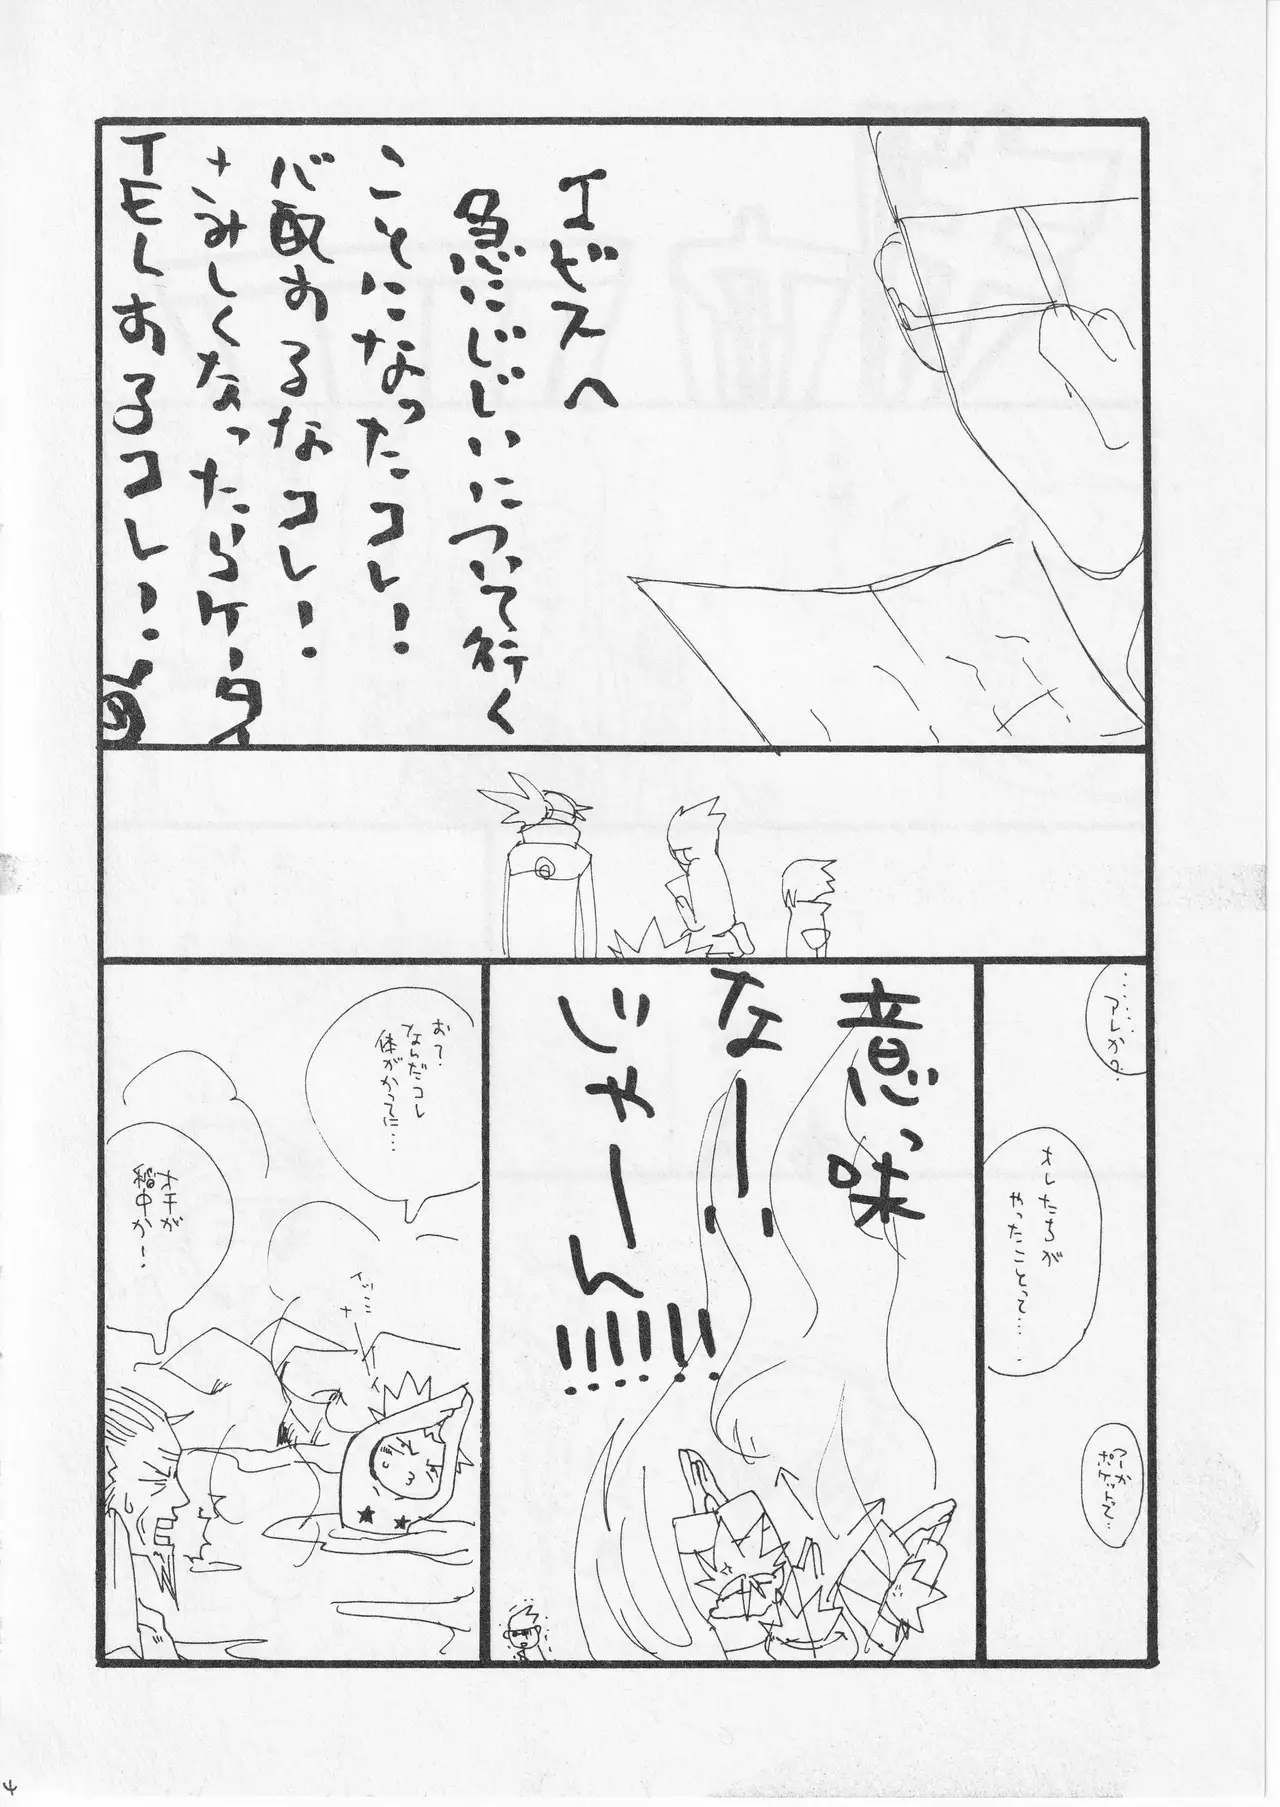 エビスへ
急にじじいについて行く
ことになったコレ!
心配するなコレ!
さみしくなったらケータイ
TELするコレ!
………アレか?
オレたちが
やったことって…
アーか
ポケットで…
意っ味
なーい
じゃーん!!!!!!
おて。
なんだコレ
体がかってに…
オチが
稲中か!
4